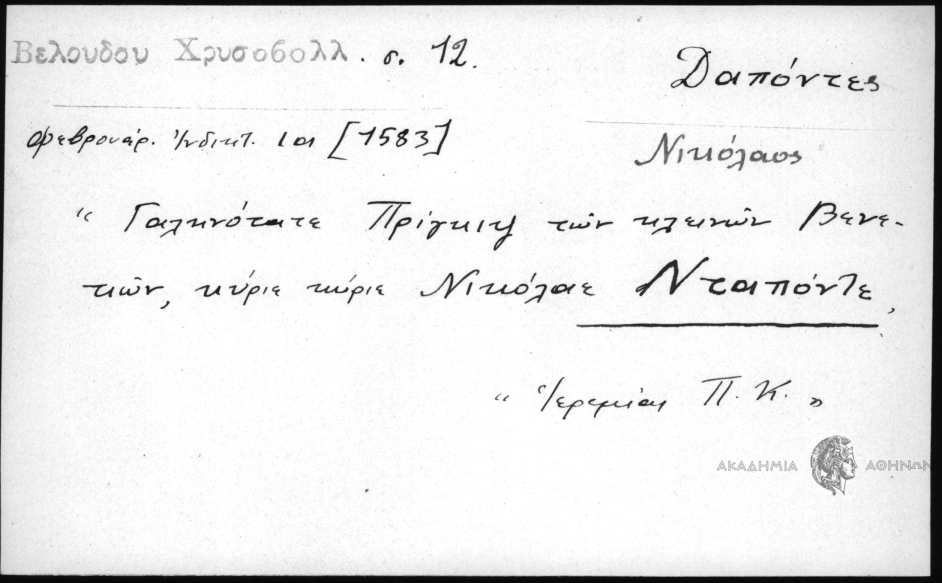 Βελουδου Χρυσοβολλ. σ. 12.
Δαπόντες
Νικόλαος
Φεβρουάρ. Ἰνδικτ. ια [1583]
“ Γαληνότατε Πρίγκιψ τῶν κλεινῶν Βενε-
τιῶν, κύριε κύριε Νικόλαε Νταπόντε,
“ Ἱερεμίας Π. Κ. ”
ΑΚΑΔΗΜΙΑ ΑΘΗΝΩΝ